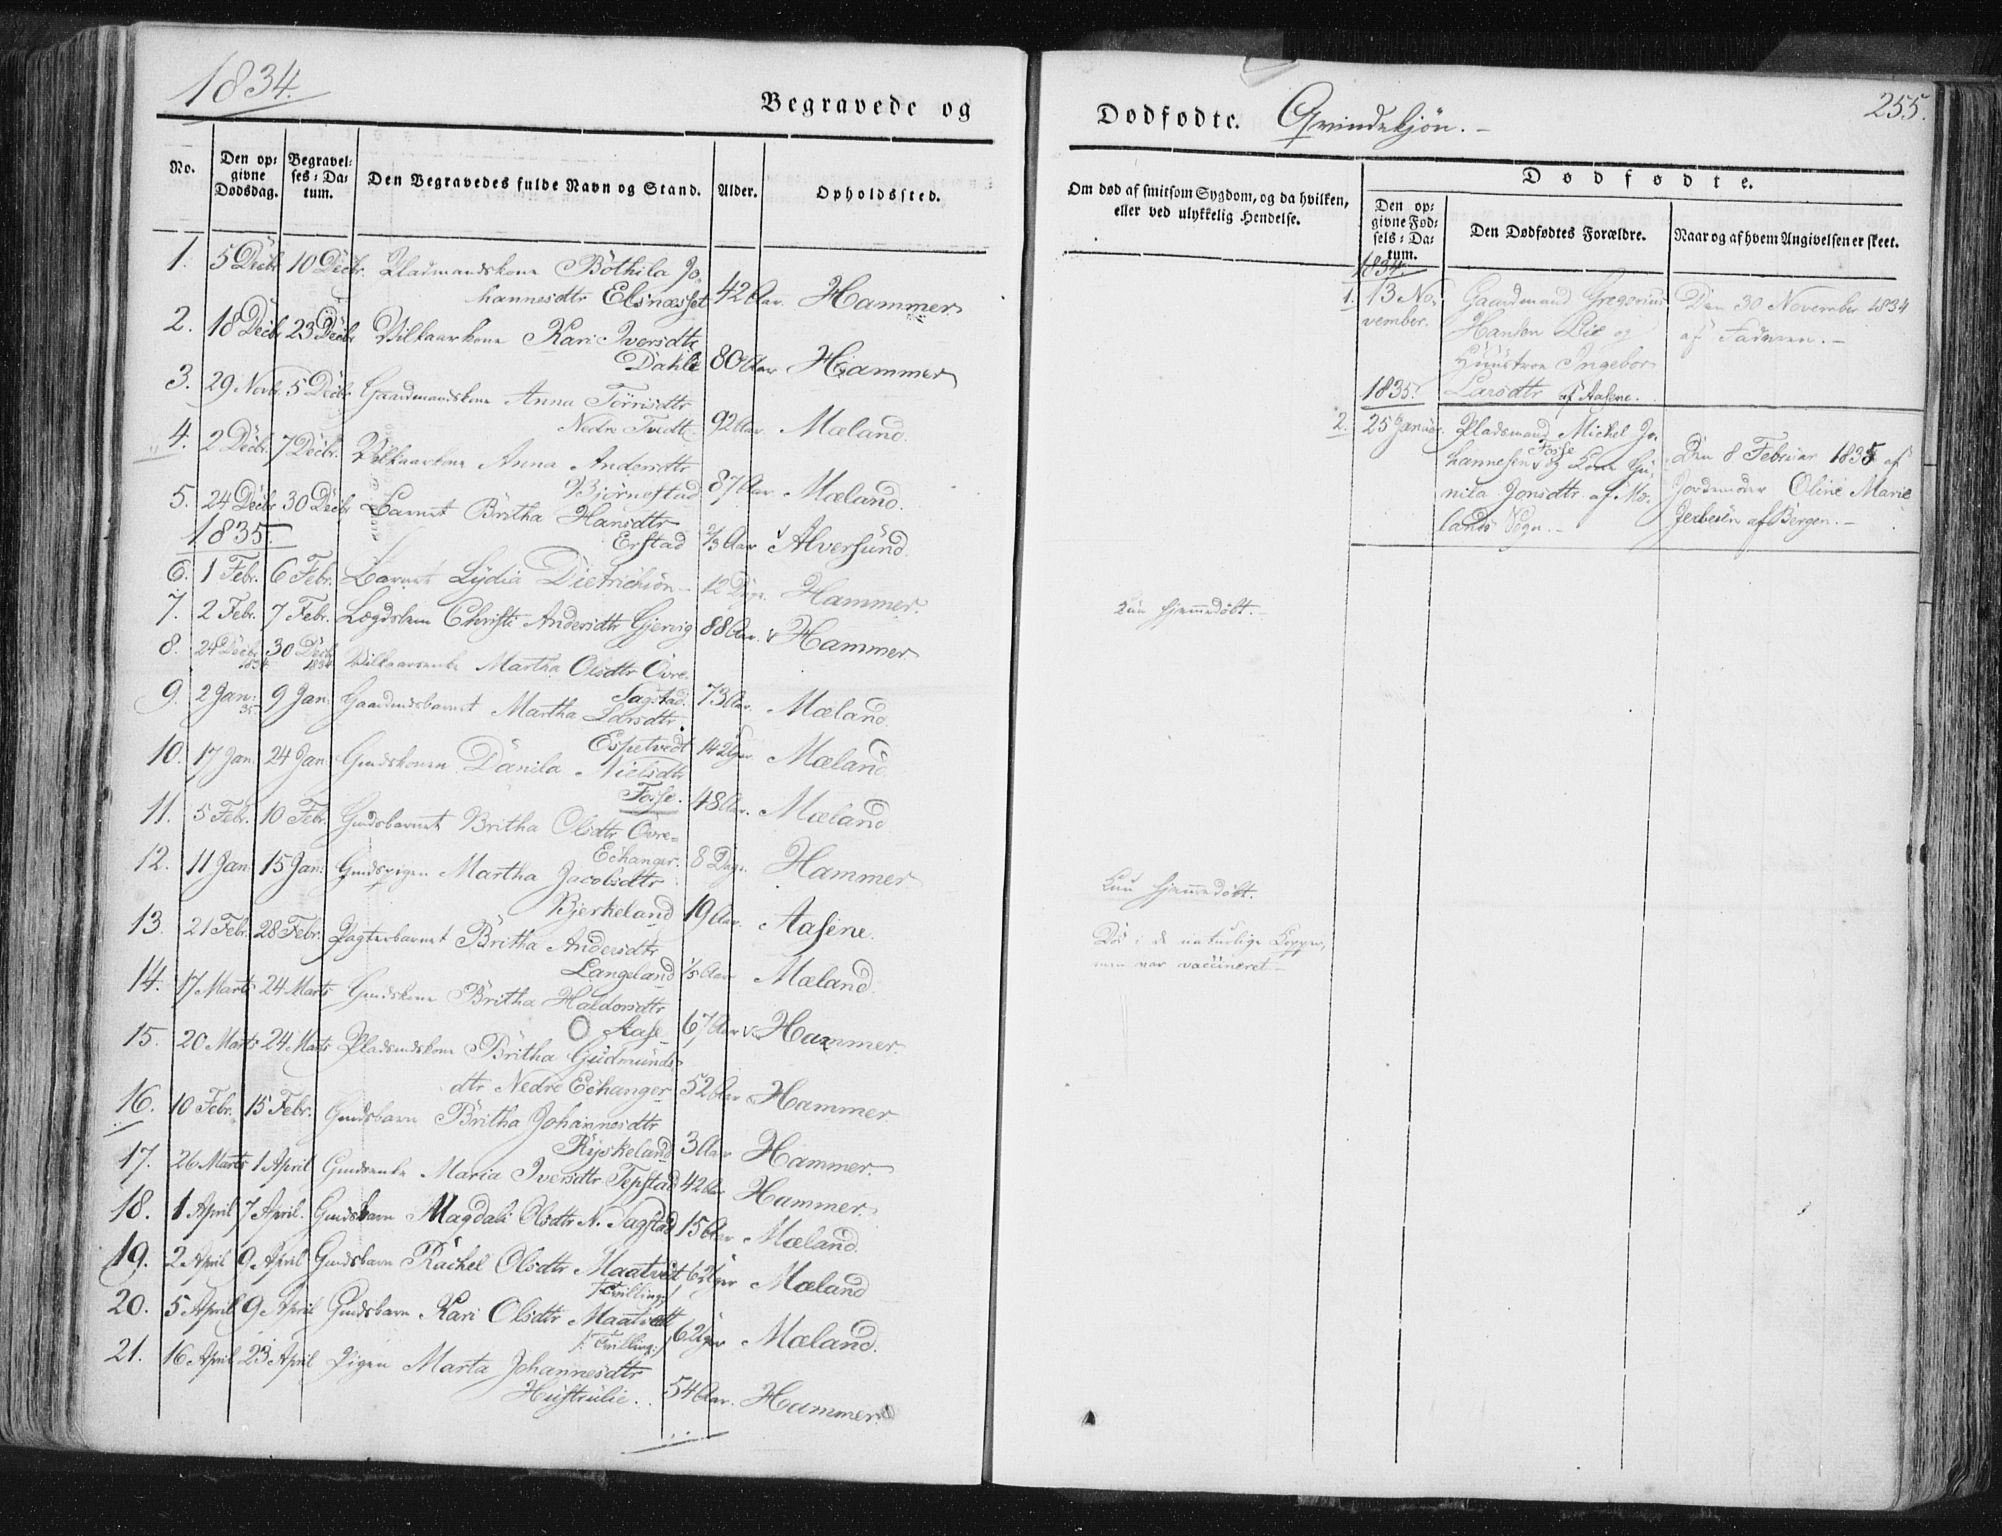 1834.
Begravede og
No.
Den op-
givne
Dødsdag.
Begravel-
ses-Da-
tum.
Den Begravedes fulde Navn og Stand.
Alder.
Opholdssted.
1. 5 Decbr 10 Decbr. Pladsmandskone Böthila Jo-
hannesdtr Elsnæsset 42 Aar. Hammer
2. 18 Decbr 23 Decbr Vilkaarkone Kari Iversdtr
Dahle 80 Aar Hammer
3. 29 Novbr. 5 Decbr Gaardmandskone Anna Törrisdtr
Nedre Tvedt 92 Aar. Mæland.
4. 2 Decbr. 7 Decbr. Vilkaarkone Anna Andersdtr
Bjørnestad 87 Aar. Mæland.
5. 24 Decbr 30 Decbr Barnet Britha Hansdtr
Erstad 2/3 Aar Alversund.
1835.
6. 1 Febr. 6 Febr. Barnet Lydia Dietrichson 12 Dage. Hammer.
7. 2 Febr. 7 Febr. Lægdslem Christi Andersdtr Gjervig 88 Aar. Hammer.
8. 24 Decbr 1834 30 Decbr 1834 Vilkaarsenke Martha Olsdtr Øvre
Sagstad. 73 Aar. Mæland.
9. 2 Jan. 35 9 Jan. Gaardmdsbarnet Martha Larsdtr.
Espetvedt 14 Uger Mæland.
10. 17 Jan. 24 Jan. Gmdskonen Danila Nielsdtr
Fosse. 48 Aar. Mæland
11. 5 Febr. 10 Febr. Gmdsbarnet Britha Olsdtr Øvre-
Echanger. 8 Dage. Hammer.
12. 11 Jan 15 Jan. Gmdspigen Martha Jacobsdtr
Bjerkeland 19 Aar. Aasene.
13. 21 Febr. 28 Febr. Pagterbarnet Britha Andersdtr
Langeland 1/5 Aar Mæland.
14. 17 Marts 24 Marts Gmdskone Britha Haldorsdtr
Aase 67 Aar Hammer.
15. 20 Marts 24 Marts Pladsmdskone Britha Gudmunds-
dtr Nedre Echanger 52 Aar Hammer.
16. 10 Febr. 15 Febr. Gmdsbarn Britha Johannesdtr
Ryskeland 3 Aar Hammer.
17. 26 Marts 1 April Gmdsenke Maria Iversdtr Tepstad 42 Aar Hammer.
18. 1 April 7 April. Gmdsbarn Magdali Olsdtr N. Sagstad 15 Aar Mæland.
19. 2 April 9 April Gmdsbarn Rachel Olsdtr Maatvedt 6 Uger Mæland
Tvilling
20. 5 April 9 April Gmdsbarn Kari Olsdtr Maatvedt 6 Uger Mæland.
Tvilling
21. 16 April 23 April Pigen Marta Johannesdtr
Hustrulie. 54 Aar. Hammer.
Dødfødte. Qvindekjøn.
255.
Om død af smitsom Sygdom, og da hvilken,
eller ved ulykkelig Hendelse.
Dødfødte.
Den op-
givne Fød-
sels-Da-
tum.
Den Dødfødtes Forældre.
Naar og af hvem Angivelsen er skeet.
1834.
1. 13 No- Gaardmand Gregorius Den 30 November 1834
vember. Hansen Lie og af Faderen.
Huustroe Ingebor
1835. Larsdtr af Aasene.
2. 25 Januar Pladsmand Michel Jo-
hannesen Fosse og Kone Gu- Den 8 Februar 1835 af
nila Jonsdtr. af Mæ- Jordemoder Oline Marie
lands Sogn. af Bergen.
Kun hjemmedøbt.
Kun hjemmedøbt.
Død i de naturlige Kopper,
men var vaccineret